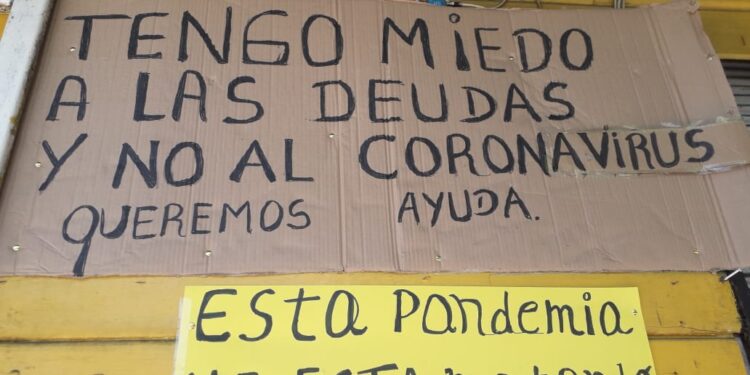 TENGO MIEDO
A LAS DEUDAS
Y NO AL CORONAVIRUS
QUEREMOS AYUDA.
ESTA Pandemia